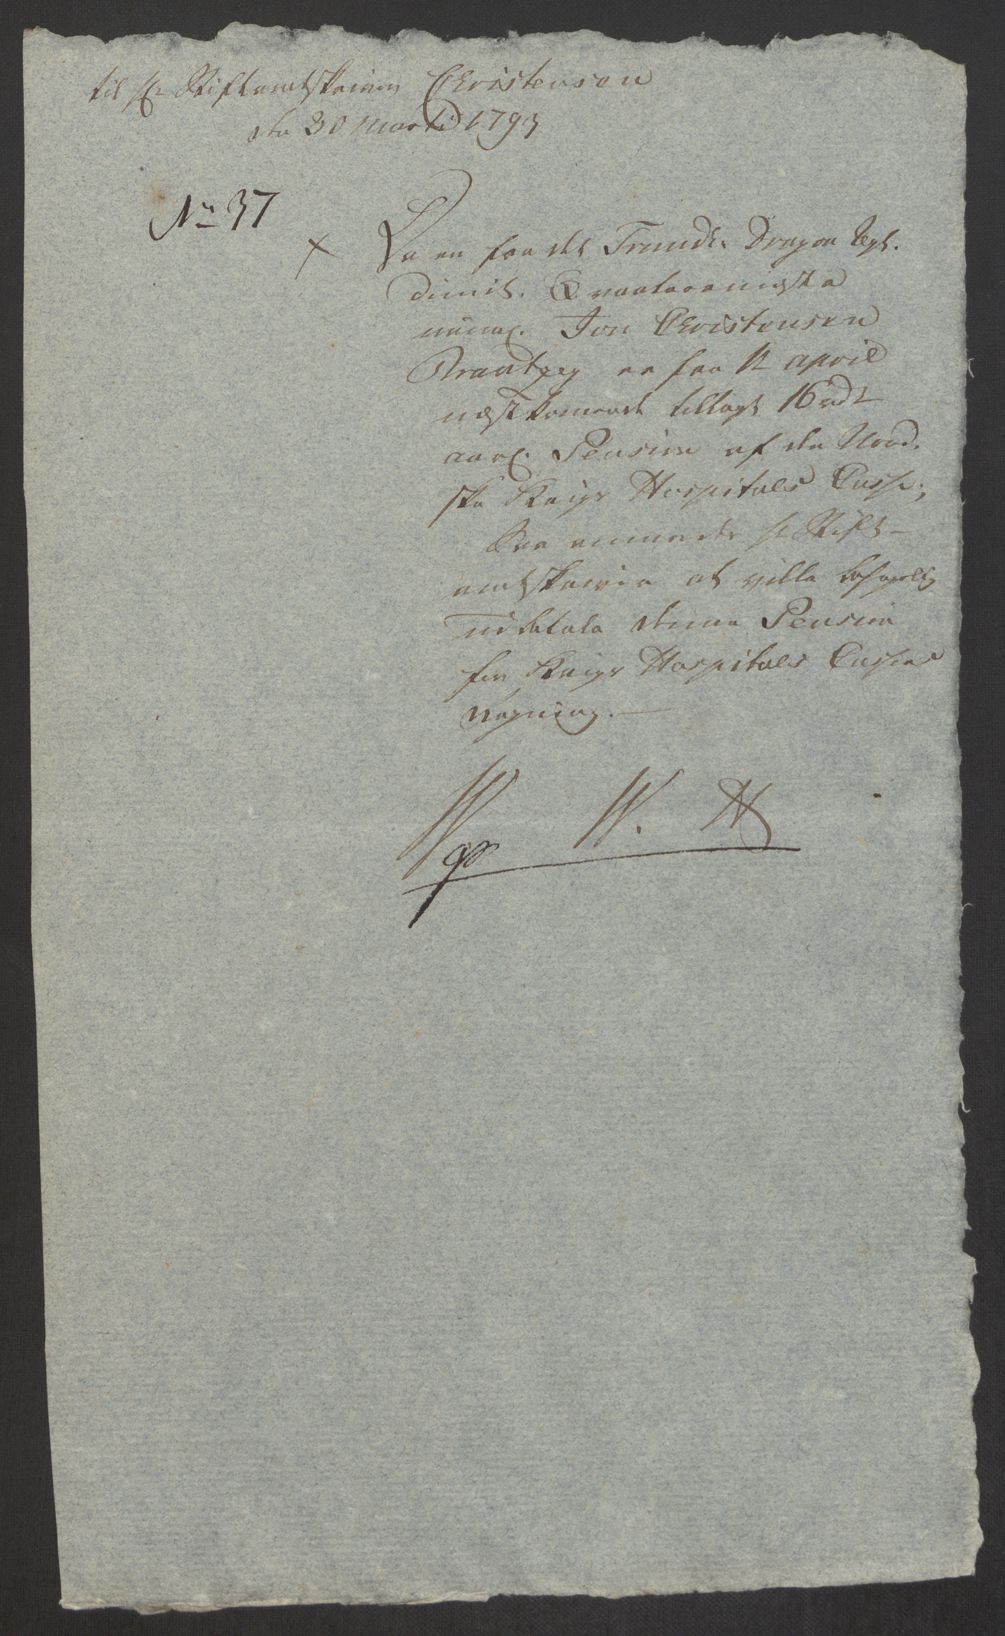 til Hr Stiftamtskriver Christensen
den 30 Martii 1793
No 37
Da en fra det Trondh. Dragon Regt.
dimit. Qvarteermester
nmac. Jon Christensen
er fra 1te April
næstkomende tillagt 16 rdr
aarl. Pension af den Nord.
ske Krigs Hospitals Casse;
Saa anmodes Hr Stift-
amtskriver at ville behagelig
udbetale denne Pension
for Krigs Hospitals Casses
Regning. —
W. H